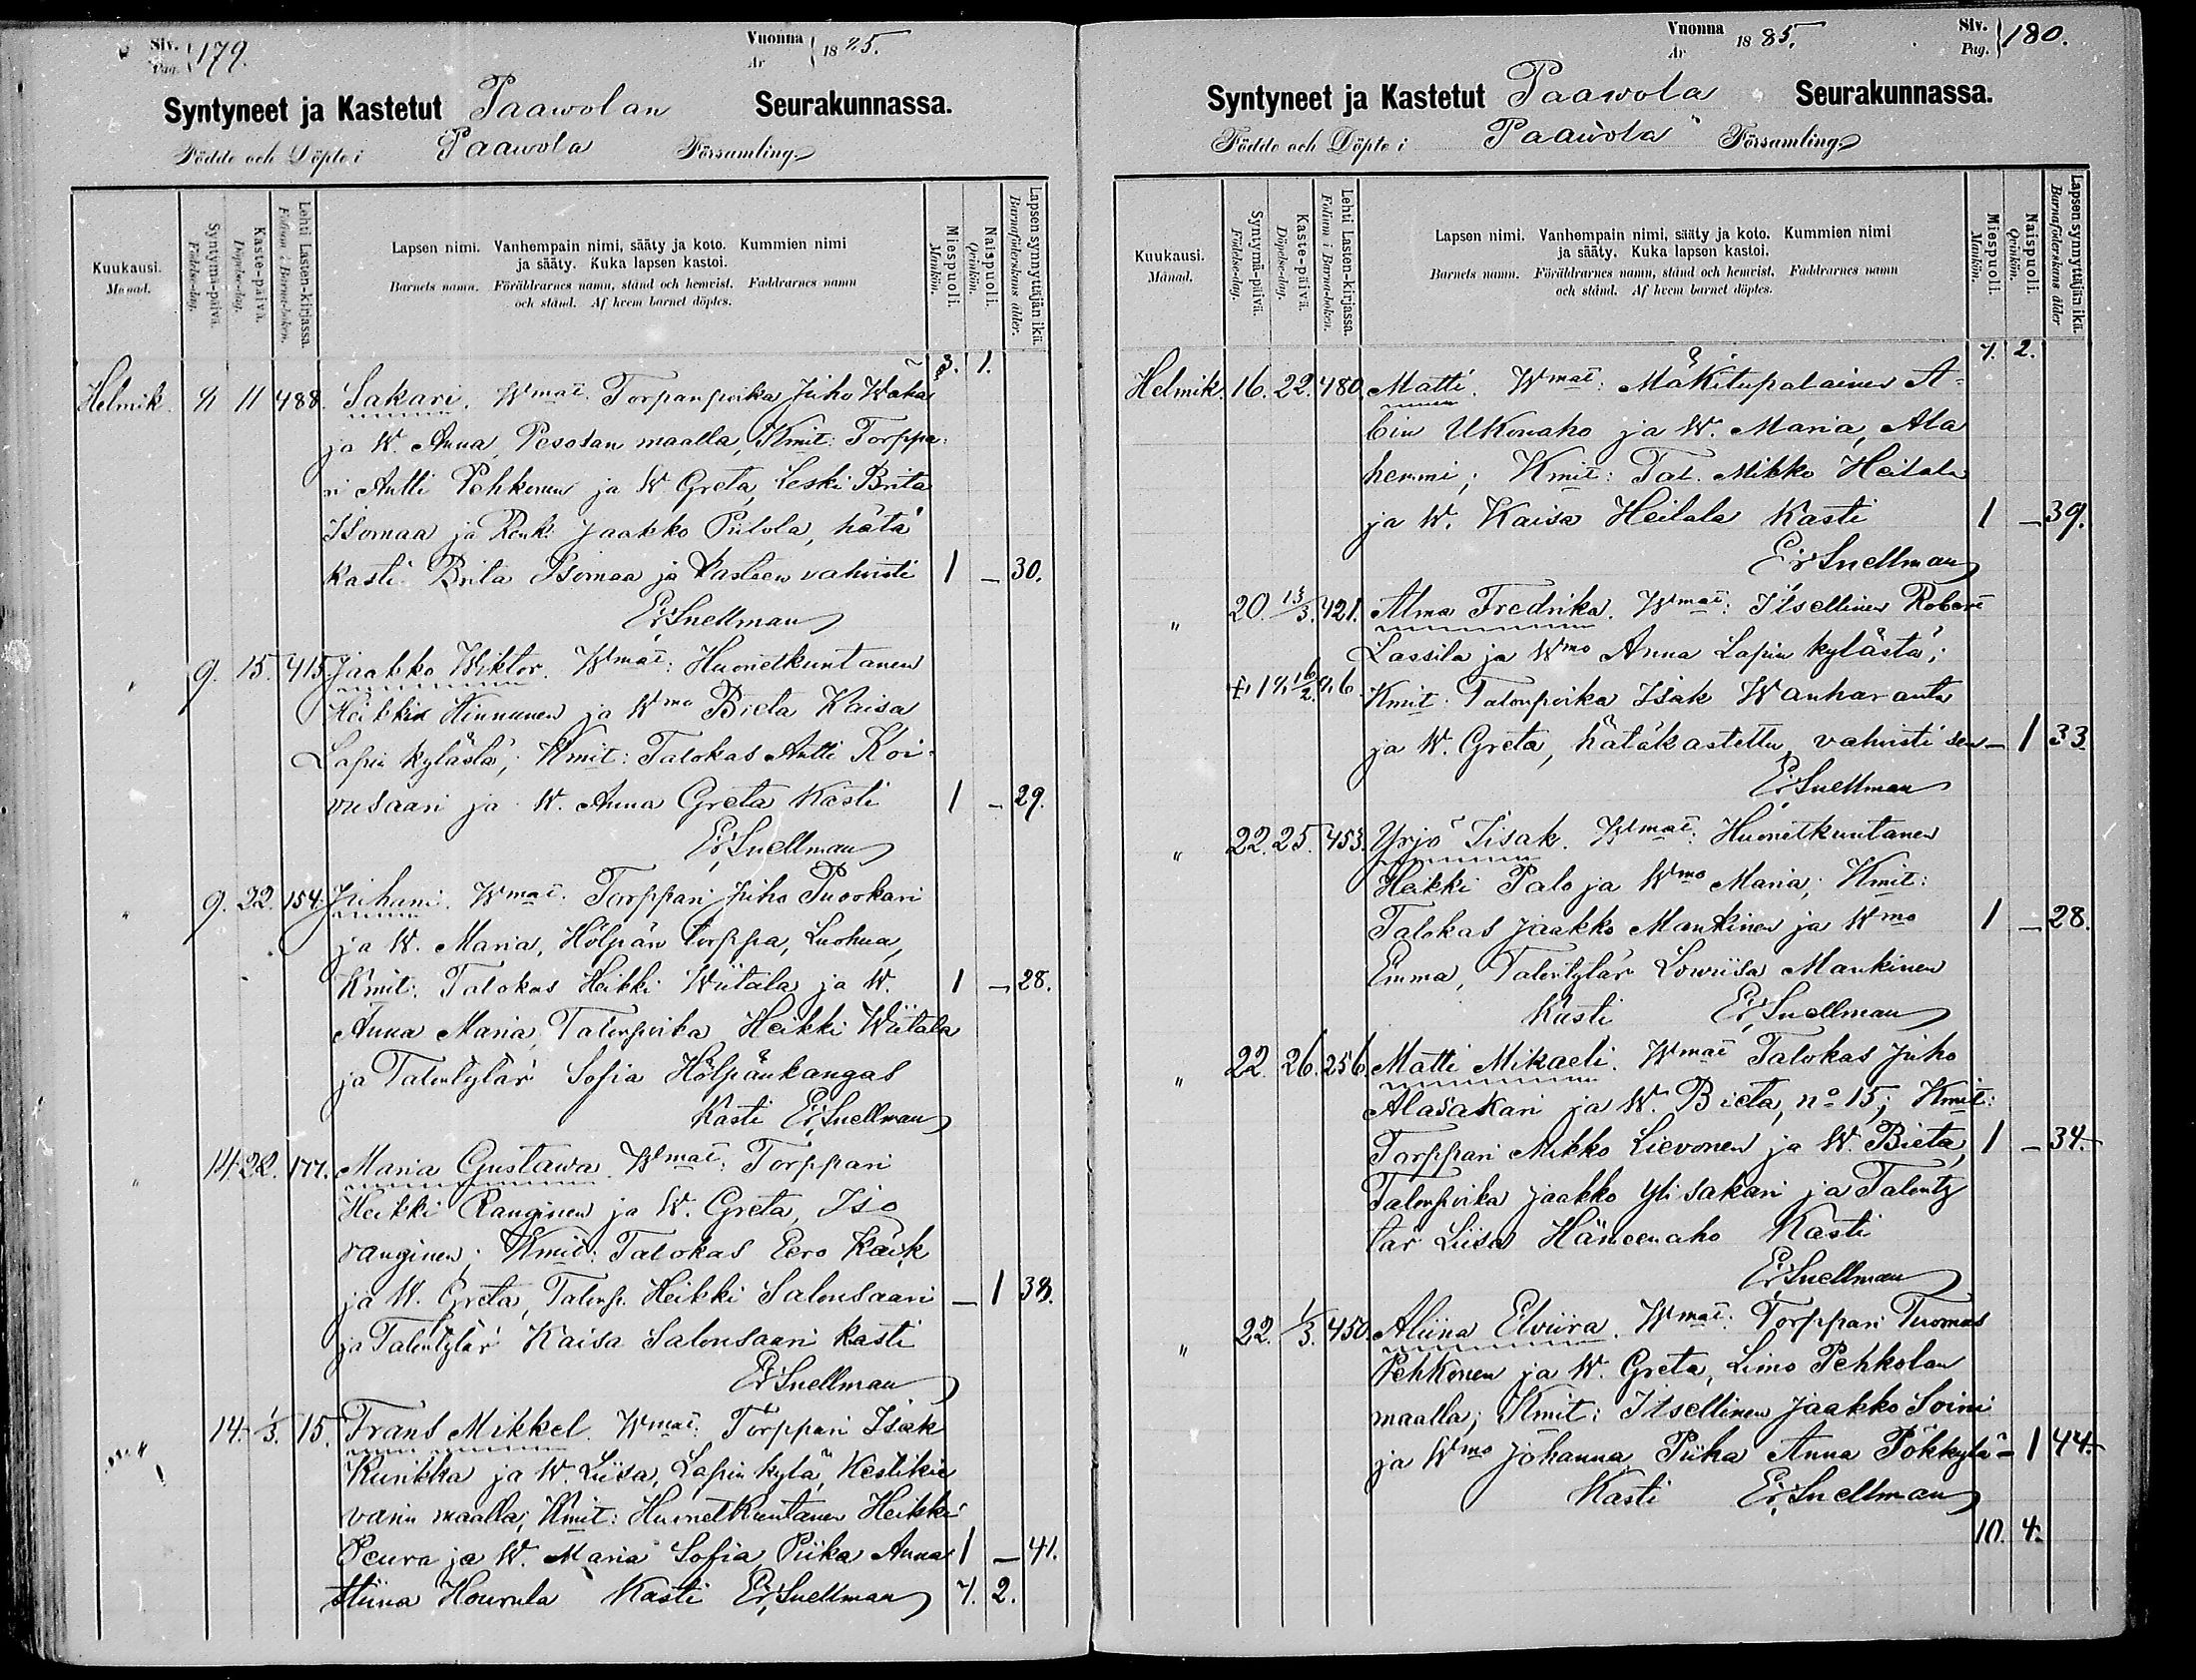 Siv. Pag. 179.
Vuonna År 1885.
Syntyneet ja Kastetut Paawolan Seurakunnassa.
Födde och Döpte i Paawola Församling
Kuukausi. Månad.
Syntymä-päivä. Födelse-dag.
Kaste-päivä. Döpelse-dag.
Lehti Lasten-kirjassa. Folium i Barna-boken.
Lapsen nimi. Vanhempain nimi, sääty ja koto. Kummien nimi
ja sääty. Kuka lapsen kastoi.
Barnets namn. Föräldrarnes namn, stånd och hemvist. Faddrarnes namn
och stånd. Af hvem barnet döptes.
Miespuoli. Mankön.
Naispuoli. Qvinkön.
Lapsen synnyttäjän ikä. Barnaföderskans ålder.
3. 1.
Helmik. 11 488. Sakari. Wmat. Torpanpoika Juho
ja W. Anna, Pesolan maalla, Kmit: Torppa-
ri Antti Pehkonen ja W. Greta, Leski Brita
Isomaa ja Renk. Jaakko Piilola, hätä
kasti Brita Isomaa ja kasteen vahvisti 1 – 30.
Er. Snellman
" 9. 15. 415. Jaakko Wiktor. Wmat: Huonetkuntanen
Heikki Hinnunen ja Wmo Brita Kaisa
Lapin kylästä; Kmit: Talokas Antti Koi-
vusaari ja W. Anna Greta Kasti 1 – 29.
Er. Snellman
" 9. 22. 154. Juhani. Wmat. Torppari Juho Puookari
ja W. Maria, Hölpän torppa, Luohua,
Kmit: Talokas Heikki Wiitala ja W. 1 – 28.
Anna Maria, Talonpoika Heikki Wiitala
ja Talontytär Sofia Hölpänkangas
Kasti Er. Snellman
" 14. 22. 177. Maria Gustawa. Wmat: Torppari
Heikki Ranginen ja W. Greta, Iso
ranginen; Kmit: Talokas Eero
ja W. Greta, Talonp. Heikki Salonsaari – 1 38.
ja Talontytär Kaisa Salonsaari kasti
Er. Snellman
" 14. 1/3. 15. Frans Mikkel. Wmat: Torppari Isak
Kurikka ja W. Liisa, Lapin kylä, Kestikie
varin maalla; Kmit: Huonetkuntanen Heikki
Peura ja W. Maria Sofia, Piika Anna 1 – 41.
Stiina Hourula Kasti Er. Snellman 7. 2.
Vuonna År 1885.
Siv. Pag. 180.
Syntyneet ja Kastetut Paawola Seurakunnassa.
Födde och Döpte i Paawola Församling
Kuukausi. Månad.
Syntymä-päivä. Födelse-dag.
Kaste-päivä. Döpelse-dag.
Lehti Lasten-kirjassa. Folium i Barna-boken.
Lapsen nimi. Vanhempain nimi, sääty ja koto. Kummien nimi
ja sääty. Kuka lapsen kastoi.
Barnets namn. Föräldrarnes namn, stånd och hemvist. Faddrarnes namn
och stånd. Af hvem barnet döptes.
Miespuoli. Mankön.
Naispuoli. Qvinkön.
Lapsen synnyttäjän ikä. Barnaföderskans ålder
7. 2.
Helmik. 16. 22. 480. Matti. Wmat: Mäkitupalainen A-
bin Ukonaho ja W. Maria, Ala
hemmi; Kmit: Tal. Mikko Heitala
ja W. Kaisa Heitala Kasti 1 – 39.
Er Snellman
" 20. 13/3. 421. Alma Fredrika. Wmat: Itsellinen Robert
Lassila ja Wmo Anna Lapin kylästä;
Kmit: Talonpoika Isak Wanharanta
ja W. Greta, hätäkastettu, vahvisti sen – 1 33
Er. Snellman
" 22. 25. 453. Yrjö Iisak. Wmat. Huonetkuntanen
Heikki Palo ja Wmo Maria; Kmit:
Talokas Jaakko Mankinen ja Wmo 1 – 28.
Emma, Talontytär Lowiisa Mankinen
Kasti Er. Snellman
" 22. 26. 256. Matti Mikaeli. Wmat Talokas Juho
Alasakari ja W. Brieta, no 15; Kmit:
Torppari Mikko Lievonen ja W. Brieta, 1 – 34.
Talonpoika Jaakko Ylisakari ja Talonty
tär Liisa Hämeenaho Kasti
Er. Snellman
" 22. 1/3. 450. Aliina Elviira. Wmat. Torppari Tuomas
Pehkonen ja W. Greta, Limo Pehkolan
maalla; Kmit: Itsellinen Jaakko Soini
ja Wmo Johanna, Piika Anna Pökkylä – 1 44.
Kasti Er. Snellman
10. 4.